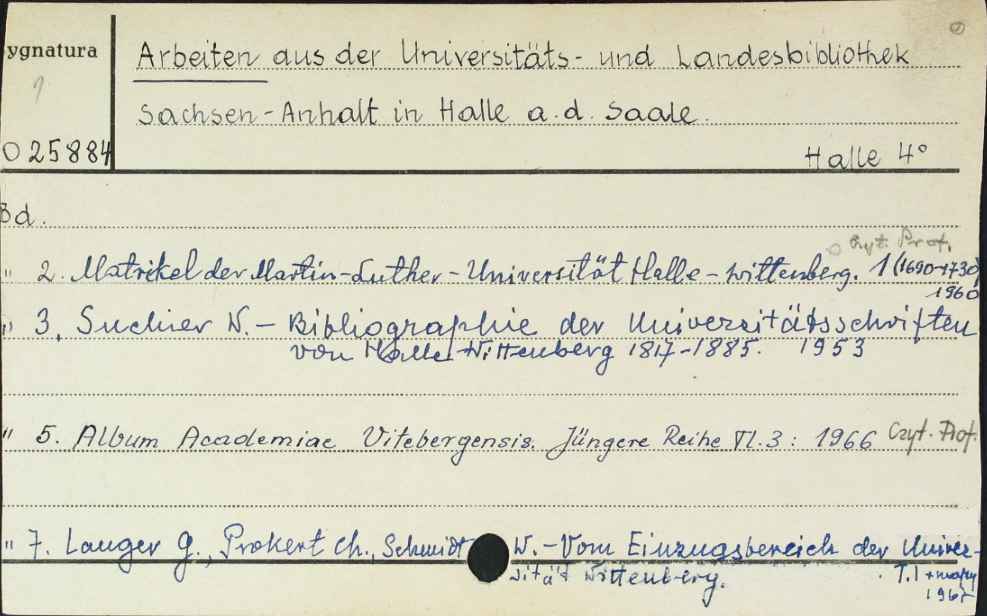 ygnatura
Arbeiten aus der Universitäts- und Landesbibliothek
Sachsen-Anhalt in Halle a.d. Saale.
O 25884
Halle 4°
Bd.
Czyt. Prof.
" 2. Matrikel der Martin-Luther-Universität Halle-Wittenberg. 1 (1690-1730)
1960
" 3. Suchier W. - Bibliographie der Universitätsschriften
von Halle-Wittenberg 1817-1885. 1953
" 5. Album Academiae Vitebergensis. Jüngere Reihe Tl. 3: 1966 Czyt. Prof.
" 7. Langer G., Prokert Ch., Schmidt W. - Vom Einzugsbereich der Univer-
sität Wittenberg. T.I + mapy